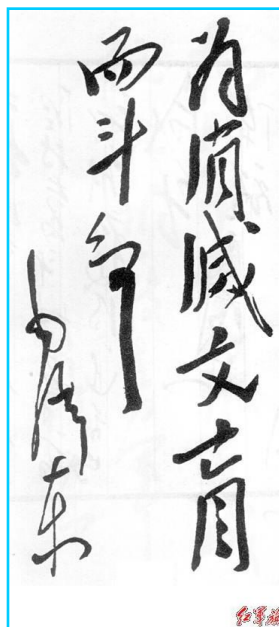 为消灭文盲
而斗争
毛泽东
红军